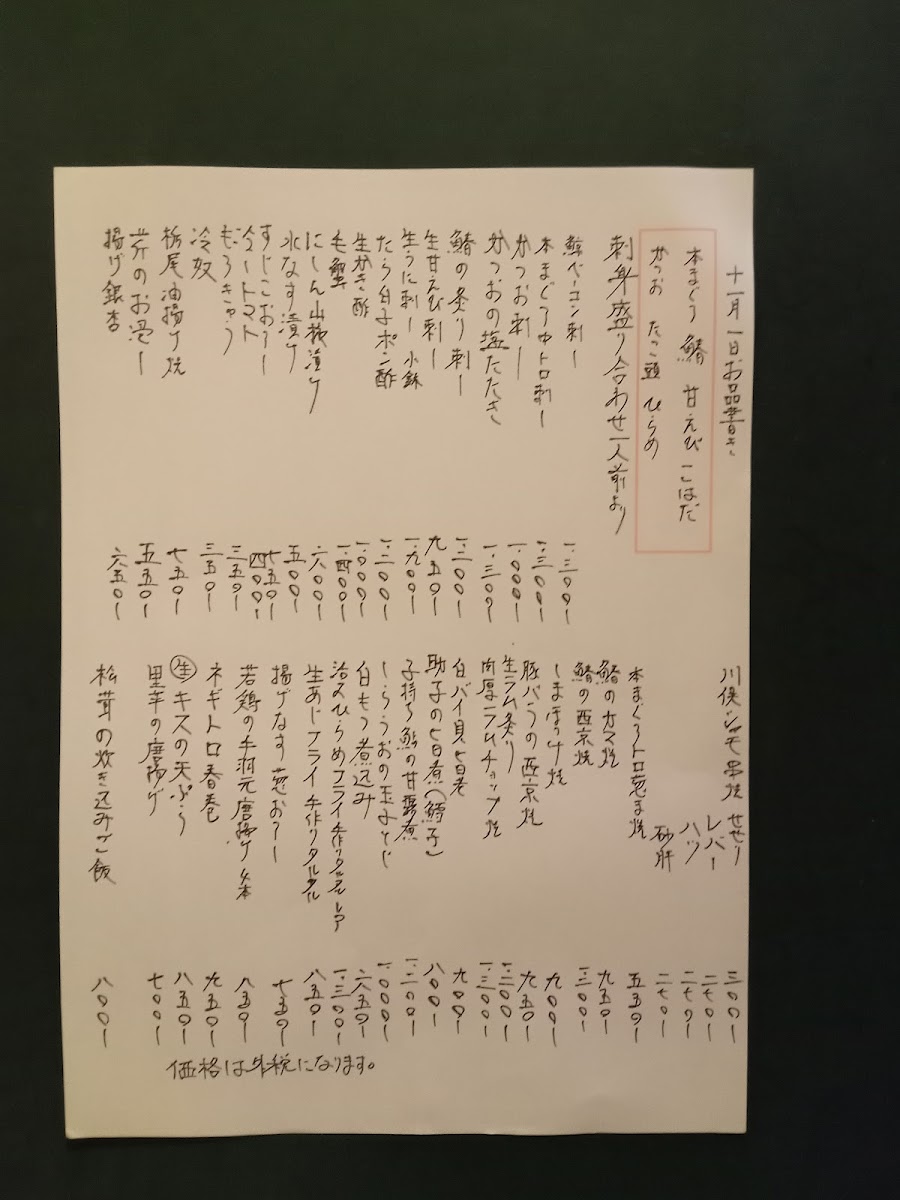 十一月一日お品書き
本まぐろ 鰆 甘えび こはだ
かつお たこ頭 ひらめ
刺身盛り合わせ一人前より 一.三〇〇ー
鯨ベーコン刺し 一.三〇〇ー
本まぐろ中トロ刺し 一.三〇〇ー
かつお刺し 一.〇〇〇ー
かつおの塩たたき 一.三〇〇ー
鰆の炙り刺し 一.二〇〇ー
生甘えび刺し 九五〇ー
生うに刺し 小鉢 一.九〇〇ー
たら白子ポン酢 一.二〇〇ー
生かき酢 一.〇〇〇ー
毛蟹 一.四〇〇ー
にしん山椒漬け 六〇〇ー
水なす漬け 五〇〇ー
すじこおろし 七五〇ー
冷しトマト 四〇〇ー
もろきゅう 三五〇ー
冷奴 三五〇ー
栃尾油揚げ焼 七五〇ー
芹のお浸し 五五〇ー
揚げ銀杏 六五〇ー
川俣シャモ串焼 せせり 三〇〇ー
レバー 二七〇ー
ハツ 二七〇ー
砂肝 二七〇ー
本まぐろトロ葱ま焼 五五〇ー
鰆のカマ焼 九五〇ー
鰆の西京焼 一.三〇〇ー
しまほっけ焼 九〇〇ー
豚バラの西京焼 九五〇ー
生ラム炙り 一.二〇〇ー
肉厚ラムチョップ焼 一.三〇〇ー
白バイ貝旨煮 九〇〇ー
助子の旨煮(鱈子) 八〇〇ー
子持ち鮎の甘露煮 一.二〇〇ー
しらうおの玉子とじ 一.〇〇〇ー
白もつ煮込み 六五〇ー
活〆ひらめフライ手作りタルタル レア 一.三〇〇ー
生あじフライ手作りタルタル 八五〇ー
揚げなす葱おろし 七五〇ー
若鶏の手羽元唐揚げ 4本 八五〇ー
ネギトロ春巻 九五〇ー
生キスの天ぷら 八五〇ー
里芋の唐揚げ 七〇〇ー
松茸の炊き込みご飯 八〇〇ー
価格は外税になります。